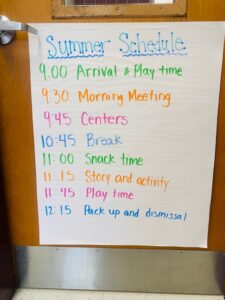 Summer Schedule
9:00 Arrival & Play time
9:30 Morning Meeting
9:45 Centers
10:45 Break
11:00 Snack time
11 15 Story and activity
11 45 Play time
12 15 Pack up and dismissal